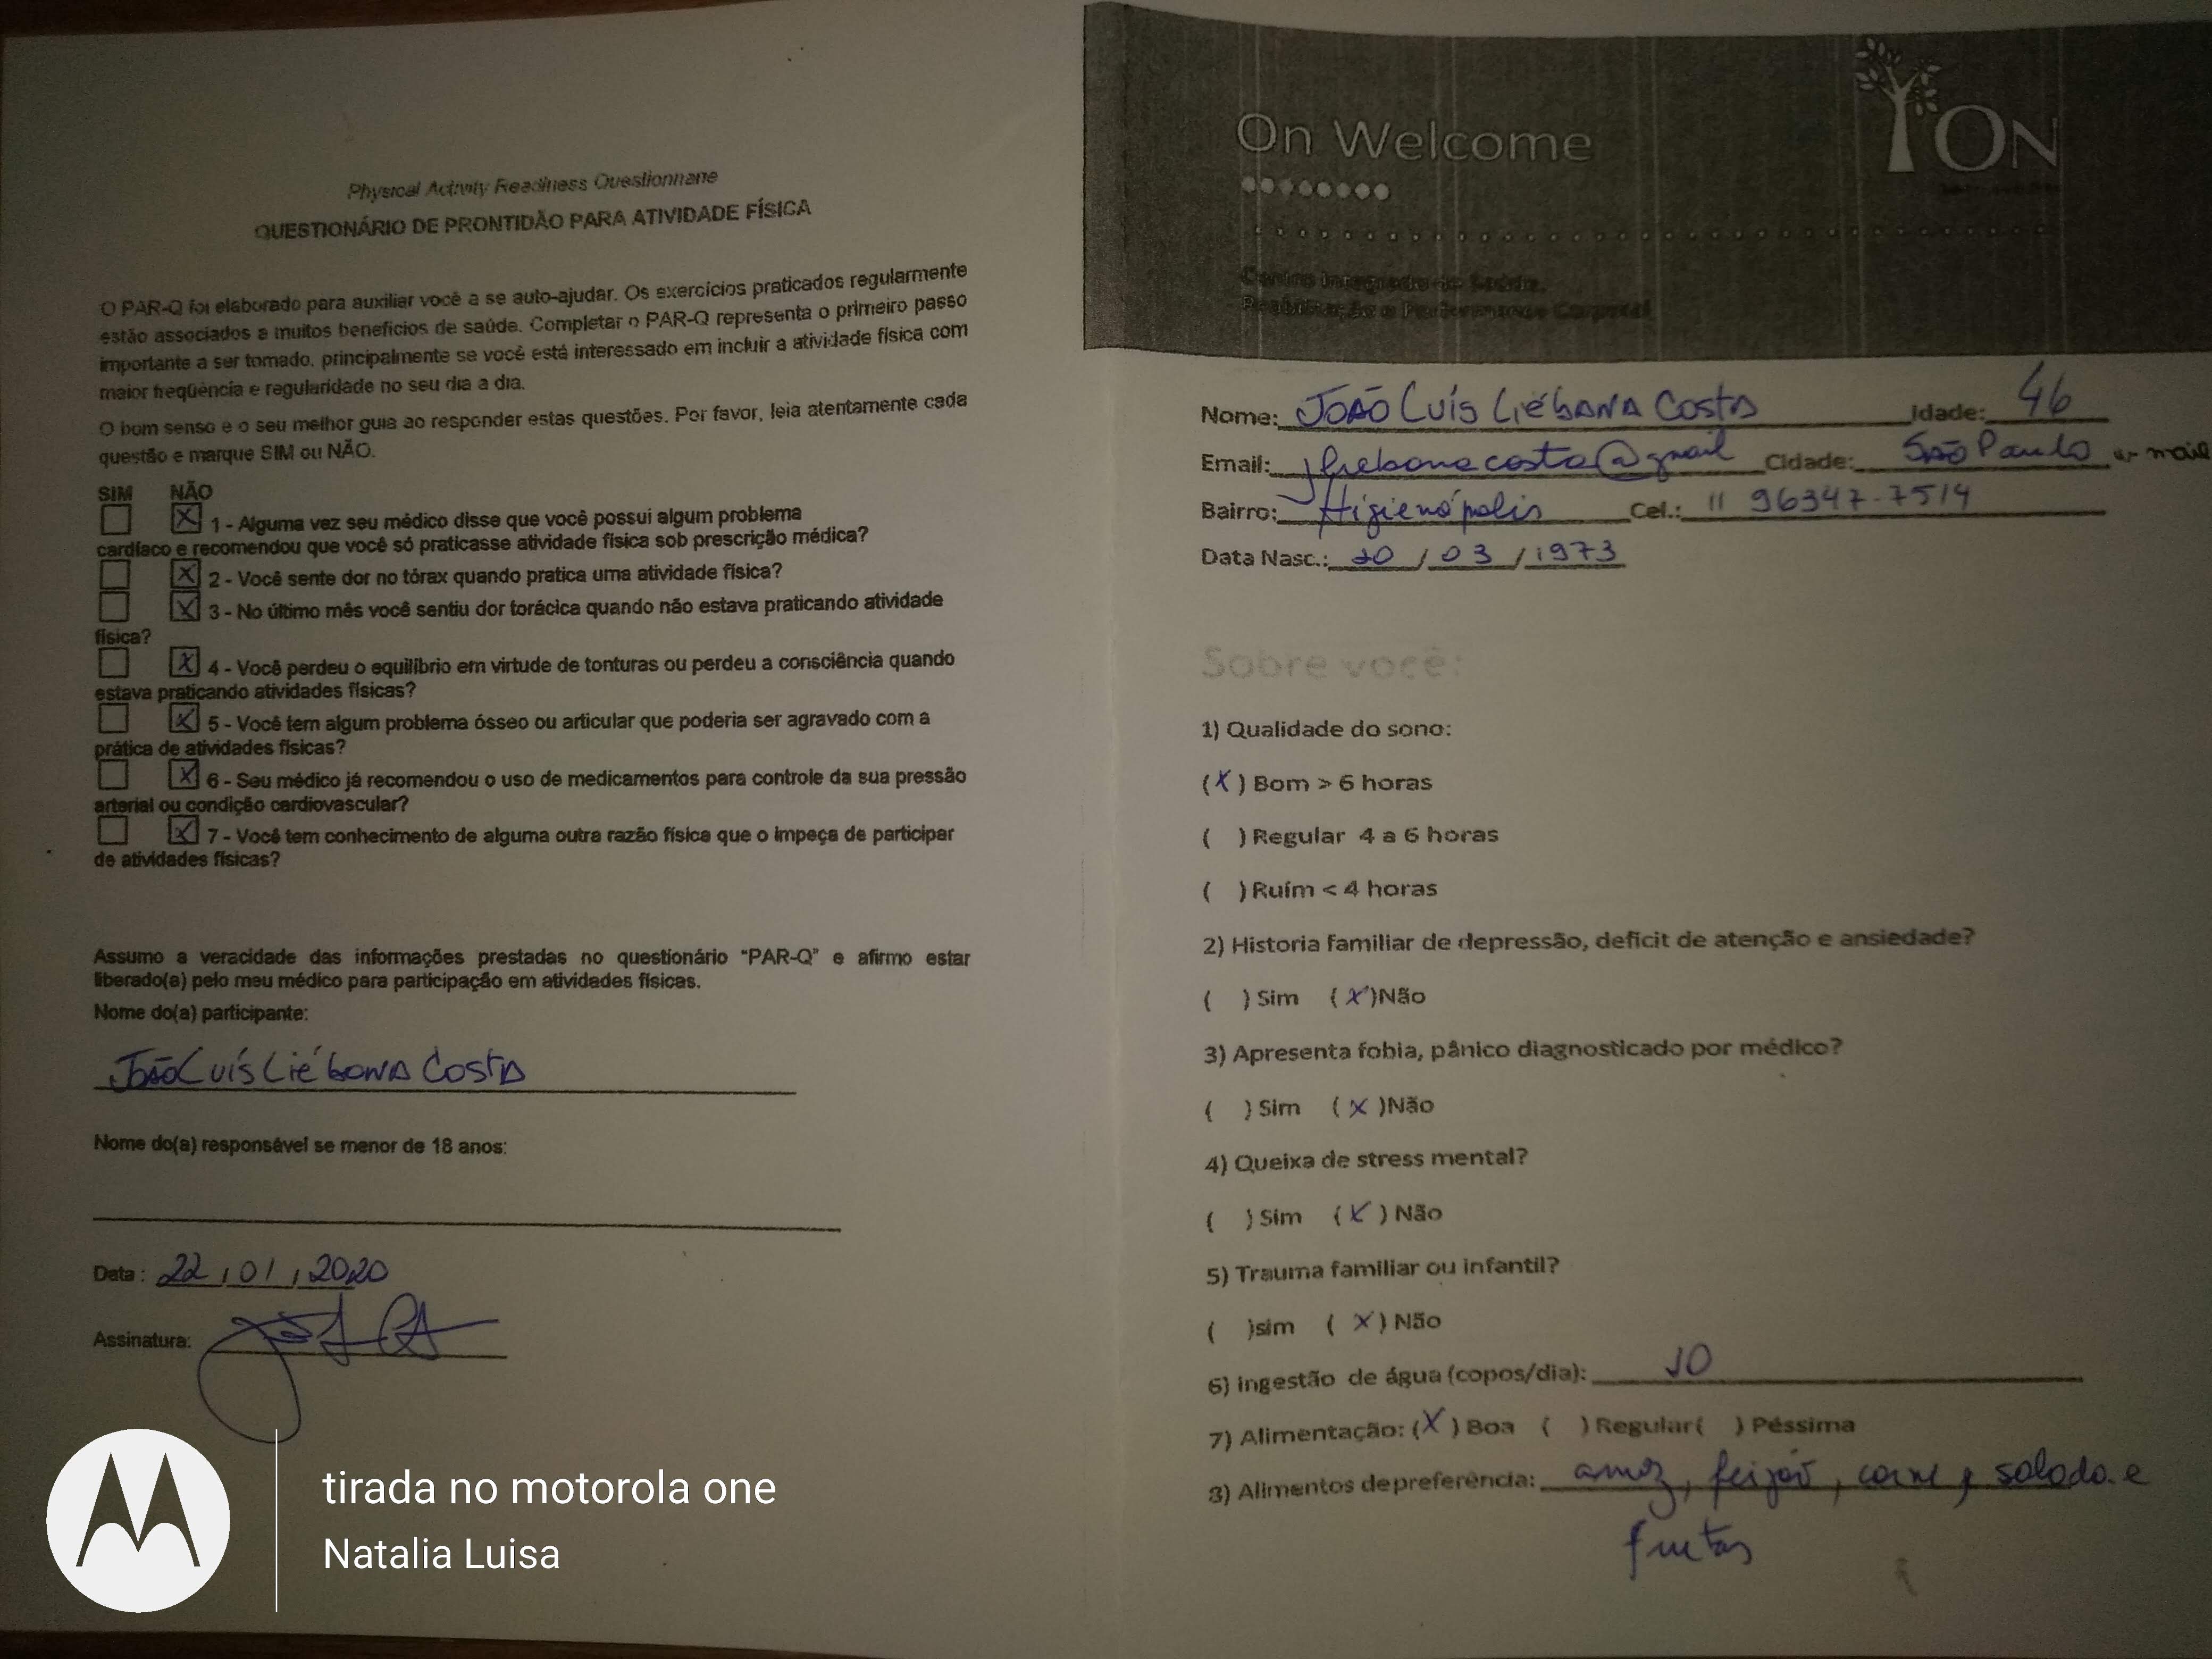 Physical Activity Readiness Questionnaire
QUESTIONÁRIO DE PRONTIDÃO PARA ATIVIDADE FÍSICA
O PAR-Q foi elaborado para auxiliar você a se auto-ajudar. Os exercícios praticados regularmente
estão associados a muitos benefícios de saúde. Completar o PAR-Q representa o primeiro passo
importante a ser tomado, principalmente se você está interessado em incluir a atividade física com
maior freqüência e regularidade no seu dia a dia.
O bom senso é o seu melhor guia ao responder estas questões. Por favor, leia atentamente cada
questão e marque SIM ou NÃO.
SIM NÃO
X 1 - Alguma vez seu médico disse que você possui algum problema
cardíaco e recomendou que você só praticasse atividade física sob prescrição médica?
X 2 - Você sente dor no tórax quando pratica uma atividade física?
X 3 - No último mês você sentiu dor torácica quando não estava praticando atividade
física?
X 4 - Você perdeu o equilíbrio em virtude de tonturas ou perdeu a consciência quando
estava praticando atividades físicas?
X 5 - Você tem algum problema ósseo ou articular que poderia ser agravado com a
prática de atividades físicas?
X 6 - Seu médico já recomendou o uso de medicamentos para controle da sua pressão
arterial ou condição cardiovascular?
X 7 - Você tem conhecimento de alguma outra razão física que o impeça de participar
de atividades físicas?
Assumo a veracidade das informações prestadas no questionário "PAR-Q" e afirmo estar
liberado(a) pelo meu médico para participação em atividades físicas.
Nome do(a) participante:
João Luís Liébana Costa
Nome do(a) responsável se menor de 18 anos:
Data : 22/01/2020
Assinatura:
tirada no motorola one
Natalia Luisa
On Welcome
ON
Centro Integrado de Saúde,
Reabilitação e Performance Corporal
Nome: João Luís Liébana Costa Idade: 46
Email: jliebanacosta@gmail Cidade: São Paulo
Bairro: Higienópolis Cel.: 11 96347-7514
Data Nasc.: /03/1973
Sobre você:
1) Qualidade do sono:
(X) Bom > 6 horas
( ) Regular 4 a 6 horas
( ) Ruím < 4 horas
2) Historia familiar de depressão, deficit de atenção e ansiedade?
( ) Sim (X)Não
3) Apresenta fobia, pânico diagnosticado por médico?
( ) Sim (X)Não
4) Queixa de stress mental?
( ) Sim (X) Não
5) Trauma familiar ou infantil?
( )sim (X) Não
6) ingestão de água (copos/dia): 10
7) Alimentação: (X) Boa ( ) Regular( ) Péssima
8) Alimentos de preferência: arroz, feijão, carne, salada e
frutas